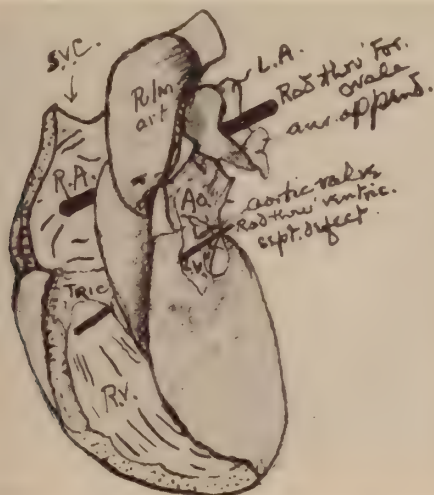 SVC.
Pulm
art
L.A.
Rod thru' For.
ovale
aur. append.
R.A.
Ao.
aortic valve
Rod thru' ventric.
sept. defect
TRIC
R.V.